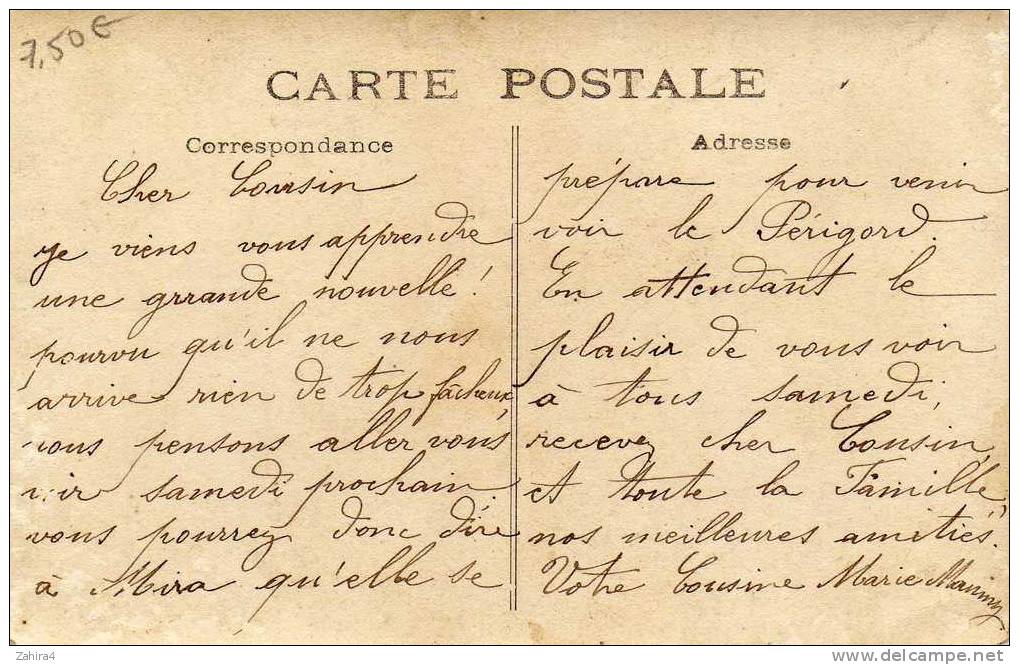 7,50€
CARTE POSTALE
Correspondance
Cher Cousin
je viens vous apprendre
une grrande nouvelle!
pourvu qu'il ne nous
arrive rien de trop fâcheux,
nous pensons aller vous
voir samedi prochain
vous pourrez donc dire
à Mira qu'elle se
Adresse
prépare pour venir
voir le Périgord.
En attendant le
plaisir de vous voir
à tous samedi,
recevez cher Cousin,
et toute la Famille,
nos meilleures amitiés.
Votre Cousine Marie
Zahira4
delcampe.net